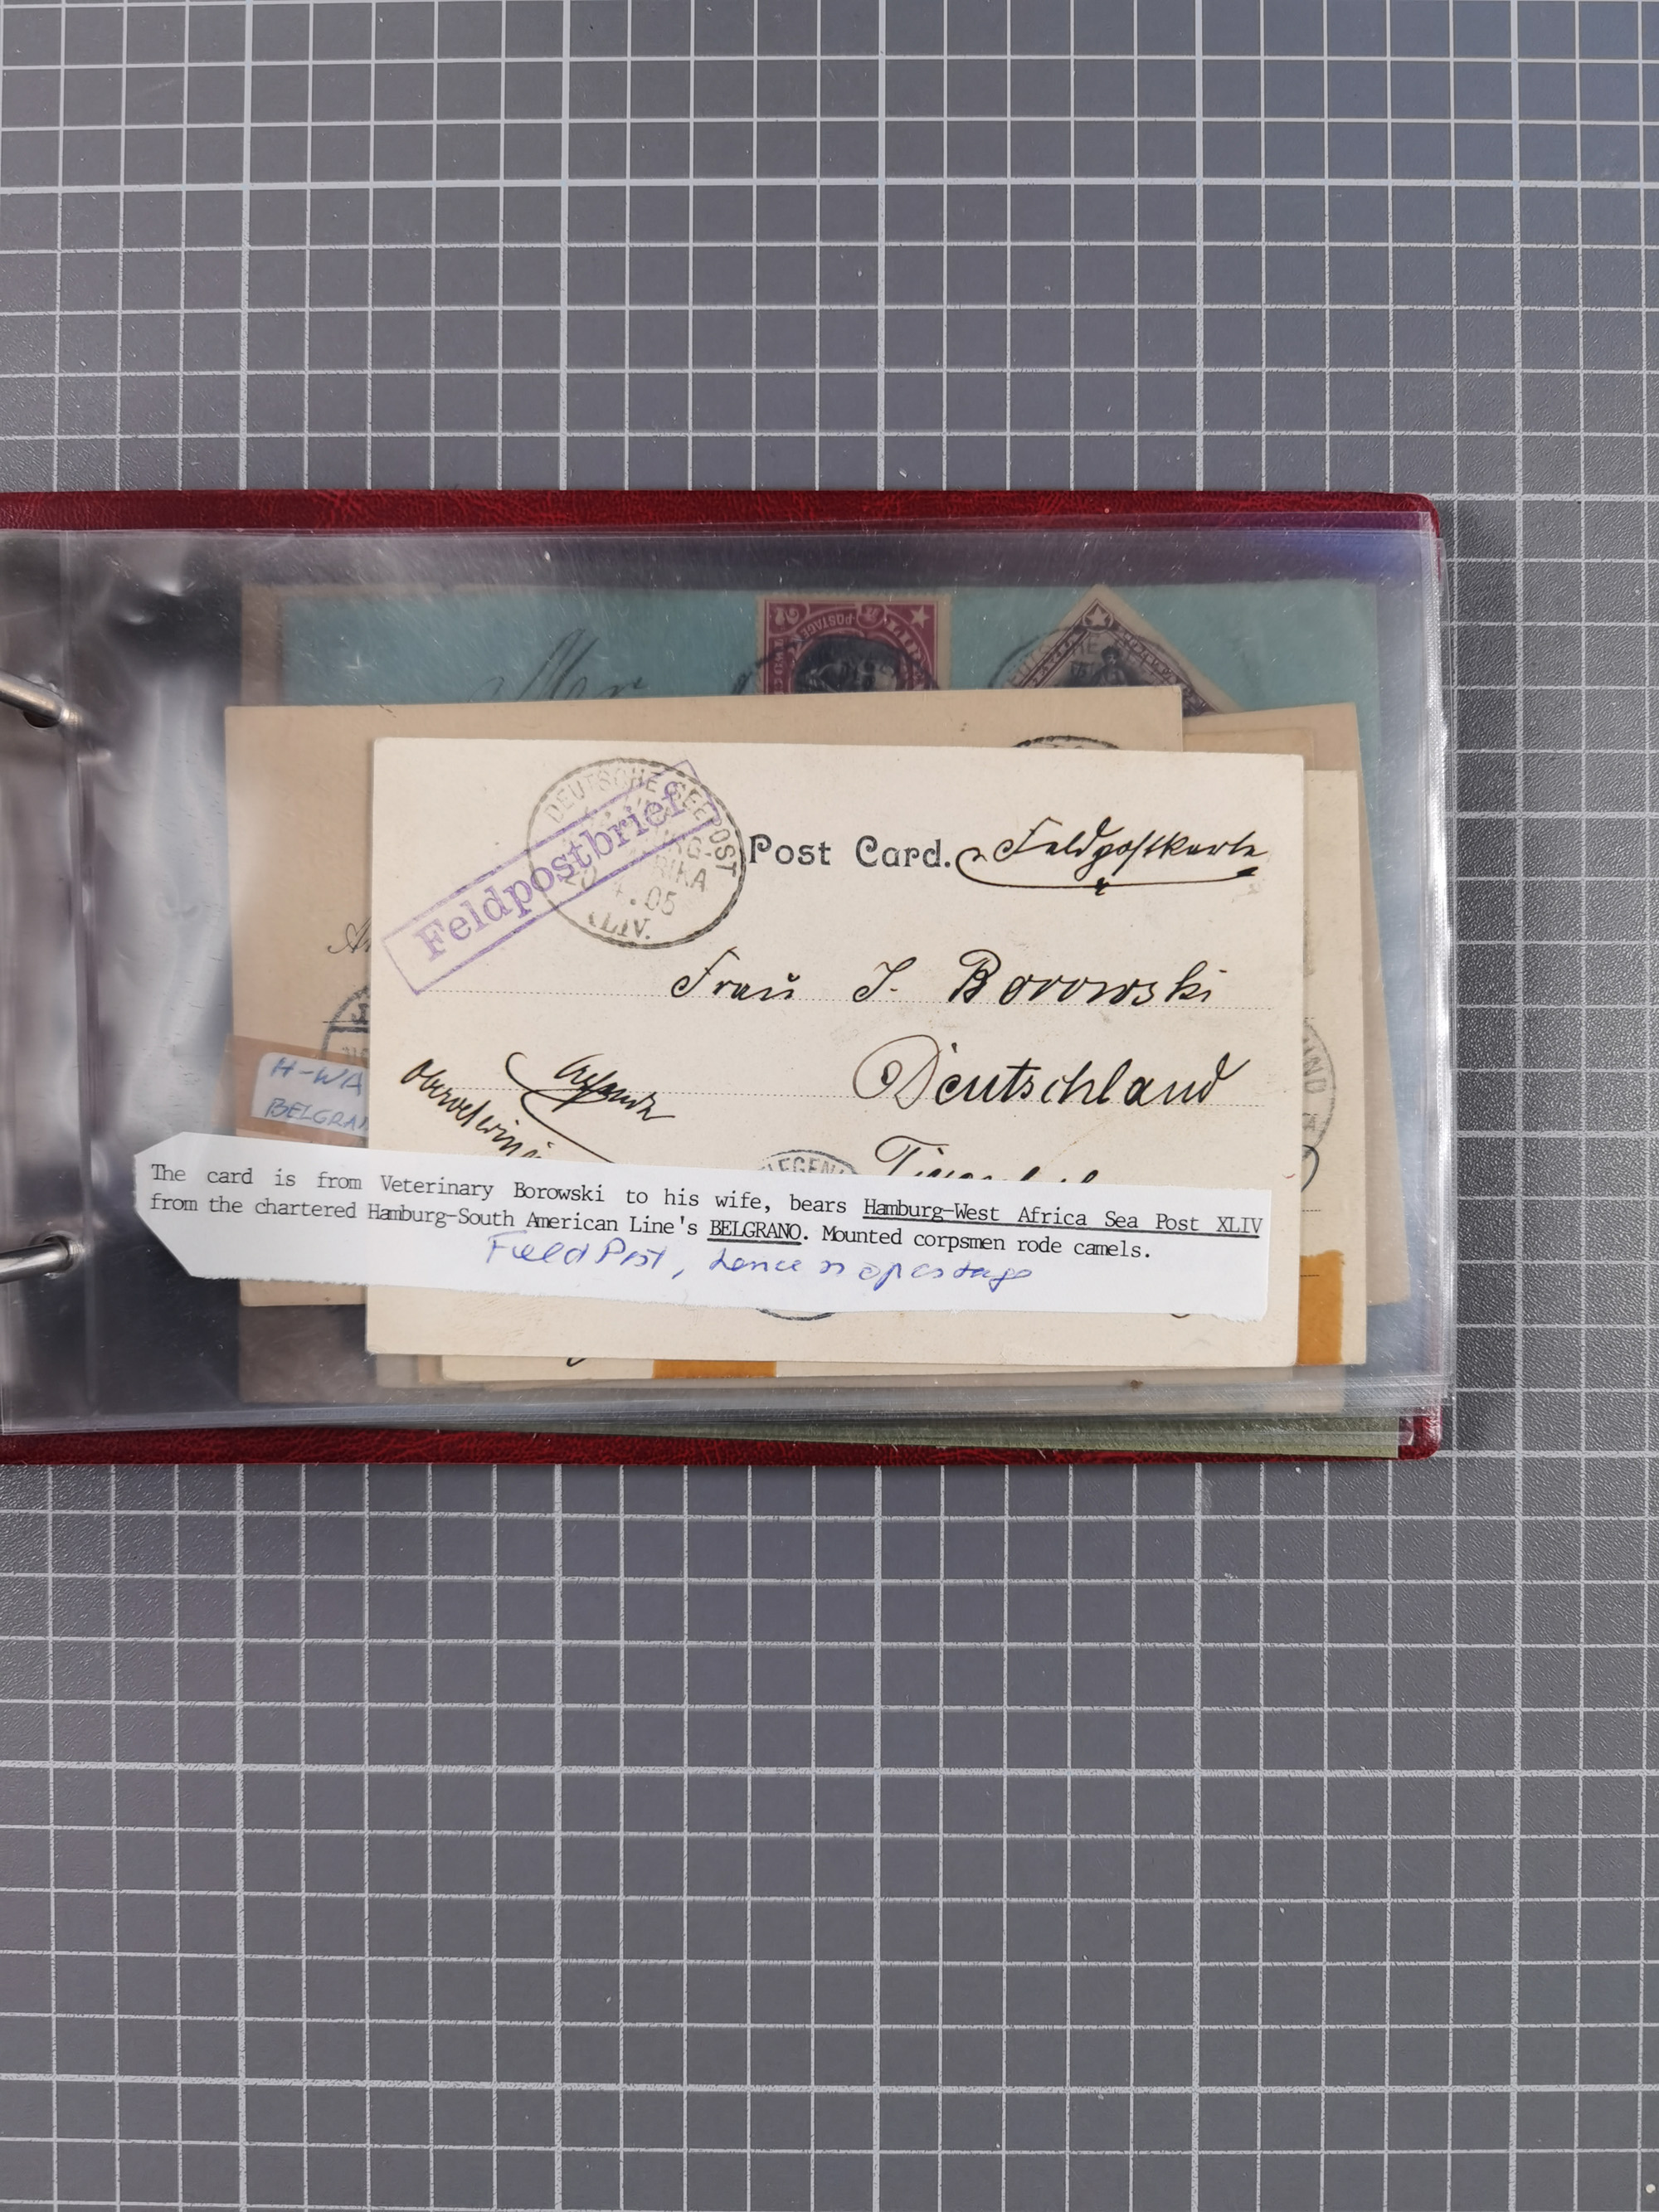 Mr
POSTAGE
DEUTSCHE SEEPOST
XLIV.
Feldpostbrief
Post Card. Feldpostkarte
Frau J. Borowski
Deutschland
H-WA
BELGRAN
The card is from Veterinary Borowski to his wife, bears Hamburg-West Africa Sea Post XLIV
from the chartered Hamburg-South American Line's BELGRANO. Mounted corpsmen rode camels.
Field Post, hence no postage